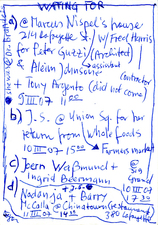 WAITING FOR
a) @ Marcus Nispel's house
214 Lafayette St. w/ Fred Harris
for Peter Guzzy (Architect)
& Aleim Johnsovic
contractor
+ Tony Argento (did not come)
9 III 07 11 00
b) J.S. @ Union Sq. for her
return from Whole Foods
10 III 07 15 00 Farmers market
c) Joern Waßmund +
Ingrid Beermann @ Sg Ground
10 III 07
17 20
d) + J.S.
Nadonja + Barry
McCalla @ Chinatown
11 III 07 14 00 380 Lafayette